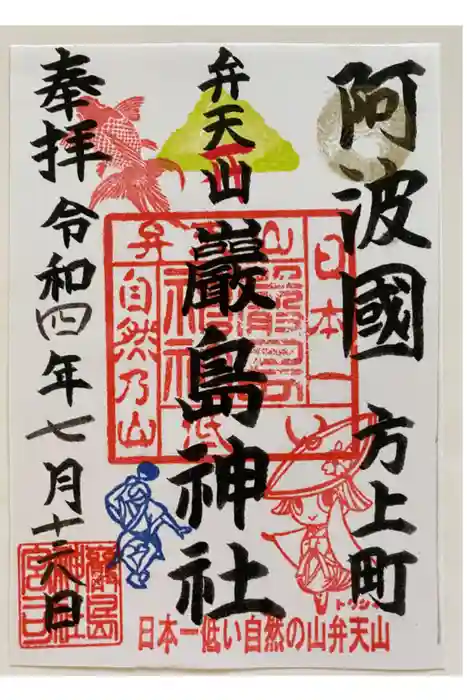 阿波國 方上町
弁天山
巌島神社
奉拝
令和四年七月十六日
日本一
自然乃山
弁天山
日本一低い自然の山弁天山